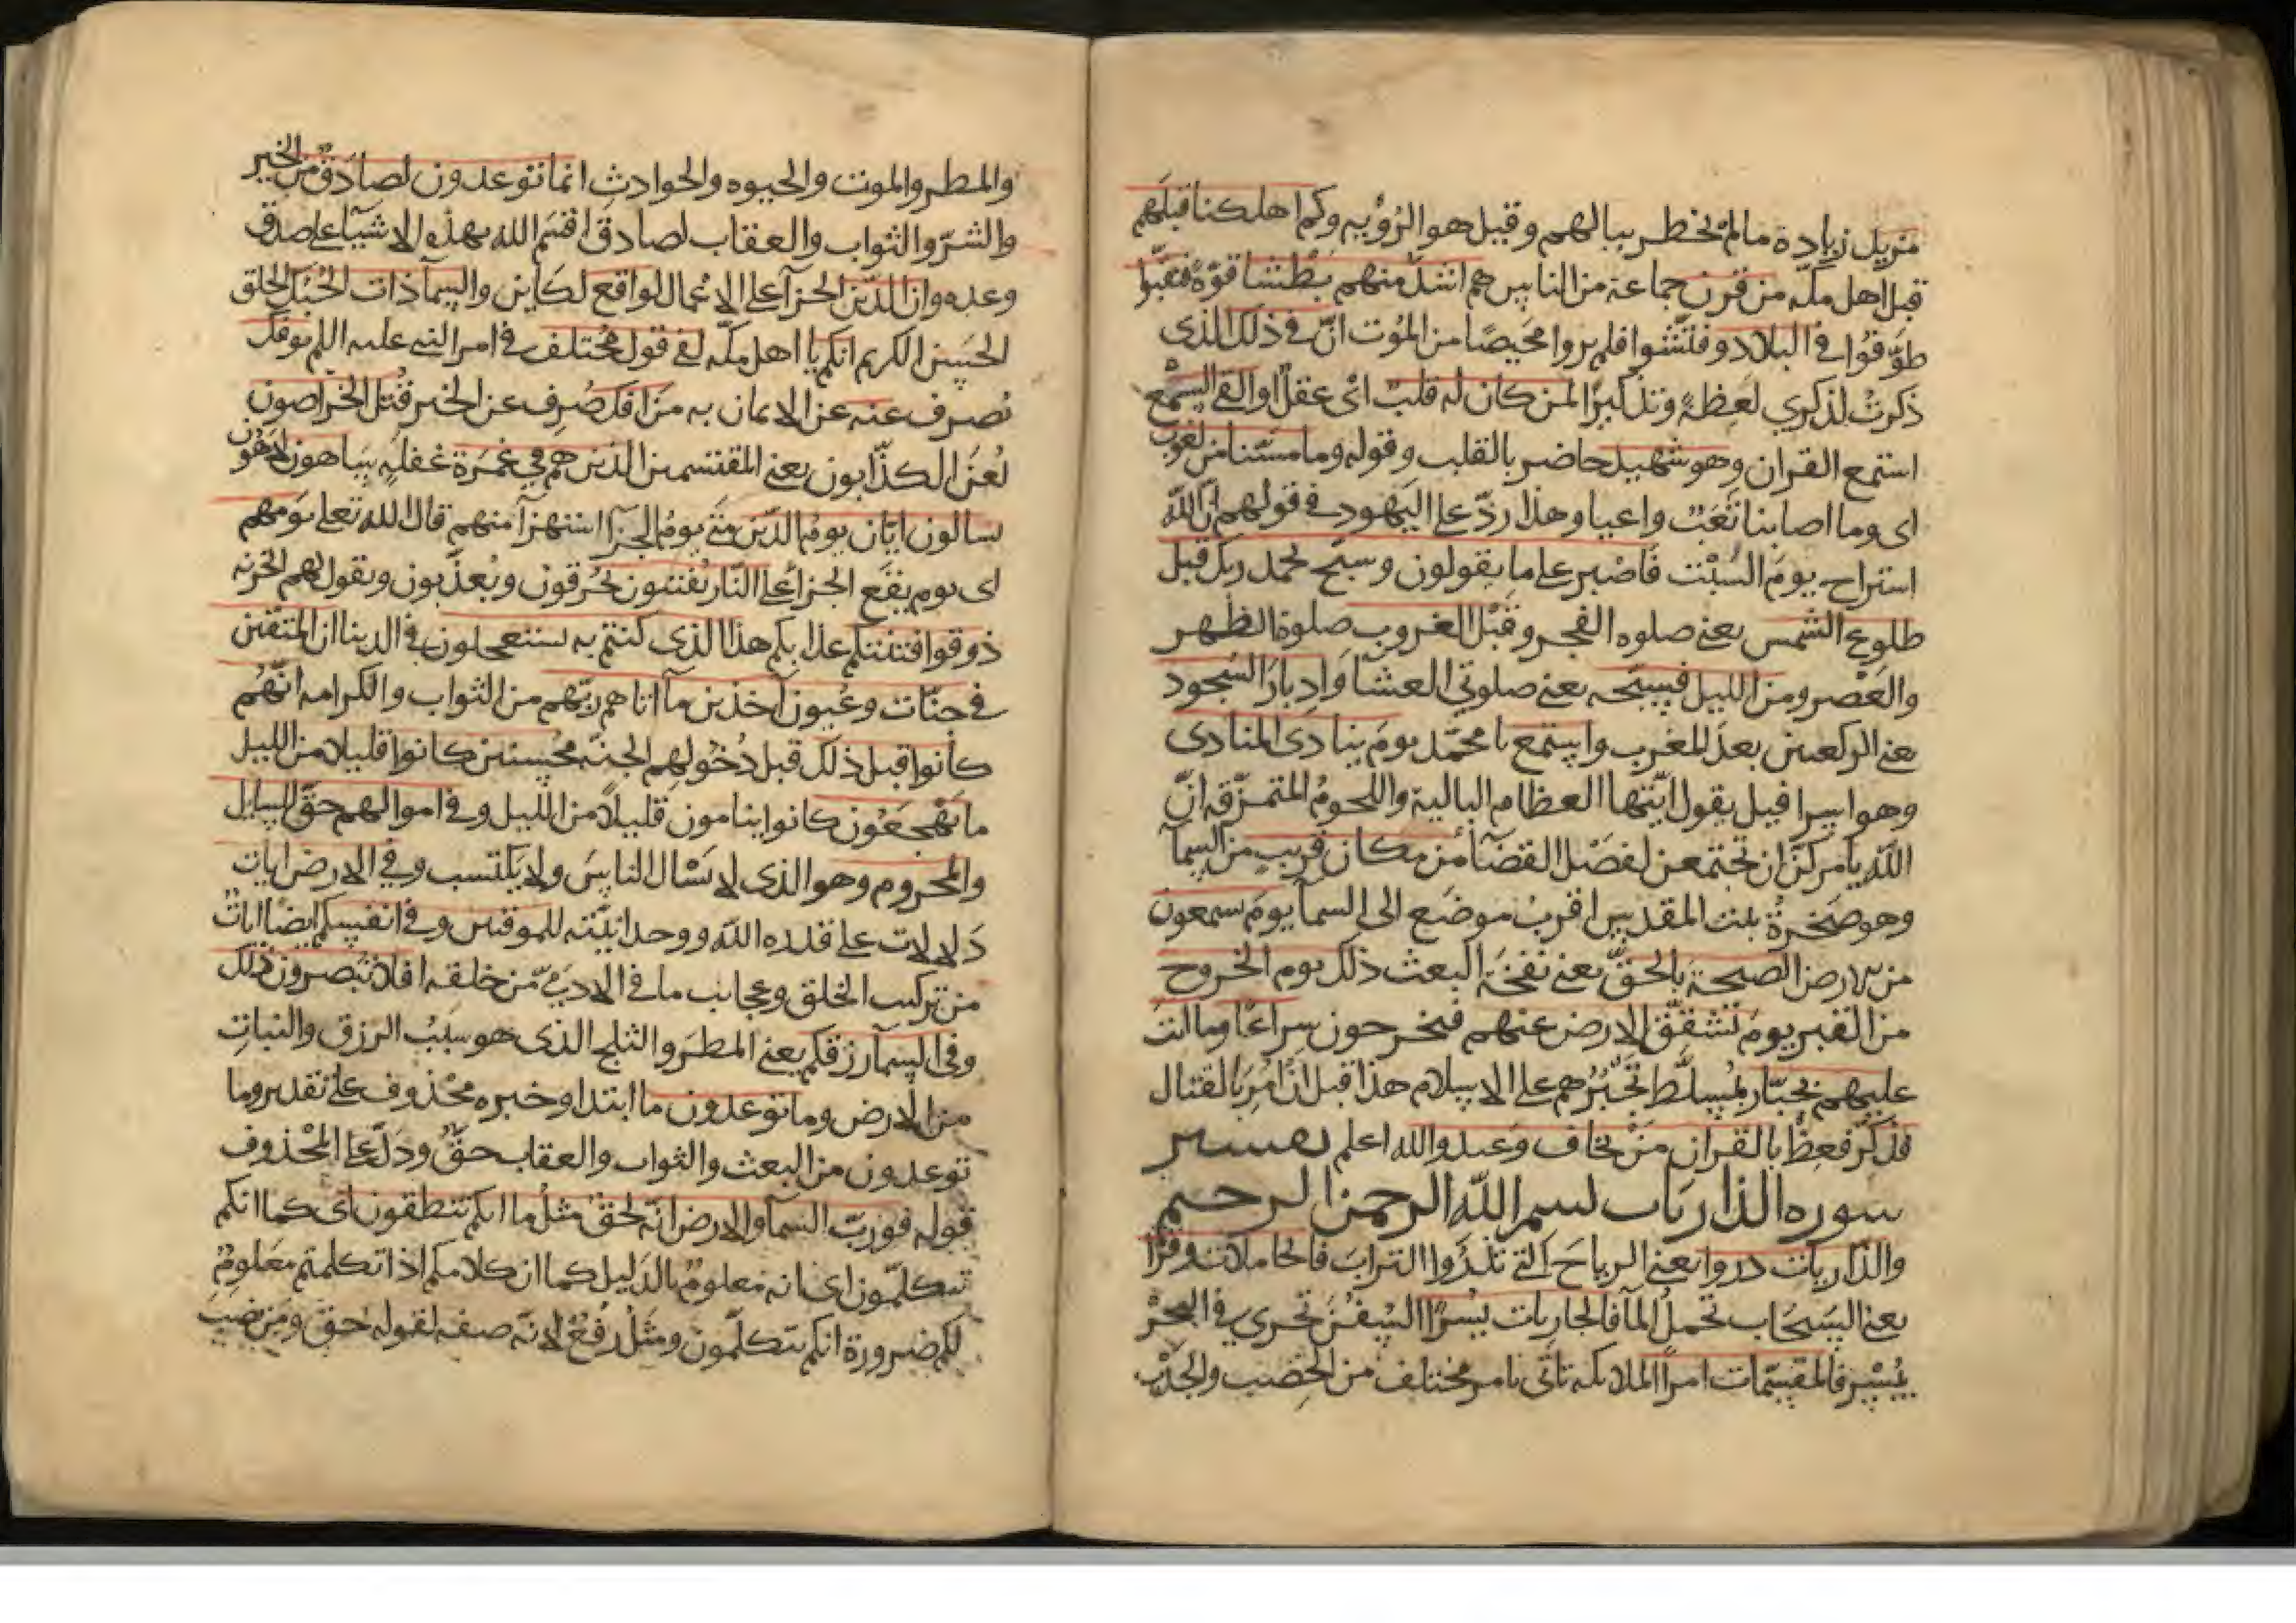 مزيد زيادة ما لم يخطر ببالهم وقيل هو الرؤيه وكم اهلكنا قبلهم
قبل اهل مكّه من قرن جماعة من الناس هم اشدّ منهم بَطْشا قوّة فنقبّوا
طوّفوا في البلاد وفتّشوا فلم يروا محيصًا من المَوت انّ في ذلك الذى
ذكرتُ لذكري لَعِظةً وتذكيرًا لمن كان له قلبٌ اى عقلٌ او القى السمع
استمع القران وهو شهيد حاضر بالقلب وقوله وما مسّنا من لغوب
اى وما اصابنا تَعَبٌ واعيا وهذا ردّ على اليَهود في قولهم انّ الله
استراح يومَ السَّبْت فَاصْبر على ما يقولون وسبّح بحمد ربك قبل
طلوع الشمس يعنى صلوه الفجر وقَبْل الغروب صلوة الظهر
والعَصْر ومن الليل فسبّحه يعنى صلوتي العشا وَادبارَ السجود
يعنى الركعتين بعدَ المغرب واستمع يا محمّد يومَ ينادى المنادى
وهو اسرافيل يقول ايّتها العظام البالية واللحومُ المتمزّقه انّ
اللّه يأمركنّ ان تجتمعن لفصْل القضَآ من مكان قريب من السمآ
وهو صَخرةُ بيت المقدس اقربُ موضَع الى السمآ يومَ يسمعون
من الارض الصيحةَ بالحقّ يعنى نفخَة البعث ذلك يوم الخروج
من القبر يومَ تَشقّق الارض عنهم فيخرحون سِراعًا وما انت
عليهم بجبّار بمُسلّط تجْبُرُهم على الاسلام هذا قبل ان اُمِرَ بالقتال
فذكّر فعِظْ بالقران مَنْ يخاف وَعيد والله اعلم تفسير
سوره الذاريات بسم اللّه الرحمن الرحيم
والذّاريات ذروا يعنى الرياحَ التى تَذْرُوا الترابَ فالحاملات وِقرًا
يعنى السَحَاب تحمل المآ فالجاريات يُسْرًا السّفن تجرى في البحر
بيُسْرٍ فالمقسّمات امرًا الملايكه تأتى بامر مختلف من الخِصْب والجَدْب
والمطر والموت والحيوه والحوادثِ انما توعدون لصادق من الخير
والشرّ والثواب والعقاب لصادق اقسَم الله بهذه الاشيآ على صدق
وعده وان الدّين الجزآ على الاعمال لواقع لكاين والسمآ ذات الحُبُك الخلق
الحَسن الكريم انكم يا اهل مكّه لفى قول مُختلف فى امر النبى عليه السلم يوفك
يُصرف عنه عن الايمان به مَن افك صُرِف عن الخير قُتل الخَراصون
لُعنَ الكذّابون يعنى المقتسمين الذين هم في غَمرَة غفلَةٍ ساهون لاهُون
يسالون ايّان يومُ الدّين متى يومُ الجزآ استهزآ منهم قال الله تعلى يَومهم
اى يوم يقَع الجزا على النّار يُفتنون يُحْرقون ويُعذّبون ويقول لهم الخزنه
ذوقوا فتنتكم عذابكم هذا الذى كنتم به تستعجلون فى الدينا ان المتقين
في جنّات وعُيون آخذين مآ اتاهم ربّهم من الثواب والكرامه انّهُم
كانوا قبل ذلك قبل دُخولِهم الجنّه محُسنين كانوا قليلا من الليل
ما يَهجَعُون كانوا ينامون قليلاً من الليل وفى اموالهم حقّ للسايل
والمحروم وهو الذى لا يَسْال الناسَ ولا يَكتسب وفي الارض ايات
دَلالات على قدره اللّه ووحدانيّته للموقنين وفى انفسكم ايضًا اياتٌ
من تركيب الخلق وعجايب ما فى الادمىّ من خلقه افلا تُبصرون ذلك
وفى السمآ رزقكم يعنى المطرَ والثلج الذى هو سَبَبُ الرزق والنباتِ
من الارض وما توعدون ما ابتدا وخبره محْذوف على تقدير وما
توعدون من البعث والثواب والعقاب حقٌّ ودَلّ على المحْذوف
قوله فورَبّ السمآ والارض انّه لحقّ مثْلُ ما انكم تنطقون اى كما انكم
تتكلّمون اى انه مَعلومٌ بالدَليل كما ان كلامكم اذا تكلمتم مَعلومٌ
لكم ضرورة انكم تتكلّمون ومثْلُ رُفعُ لانّه صفه لقوله حقّ ومَن نصبَ